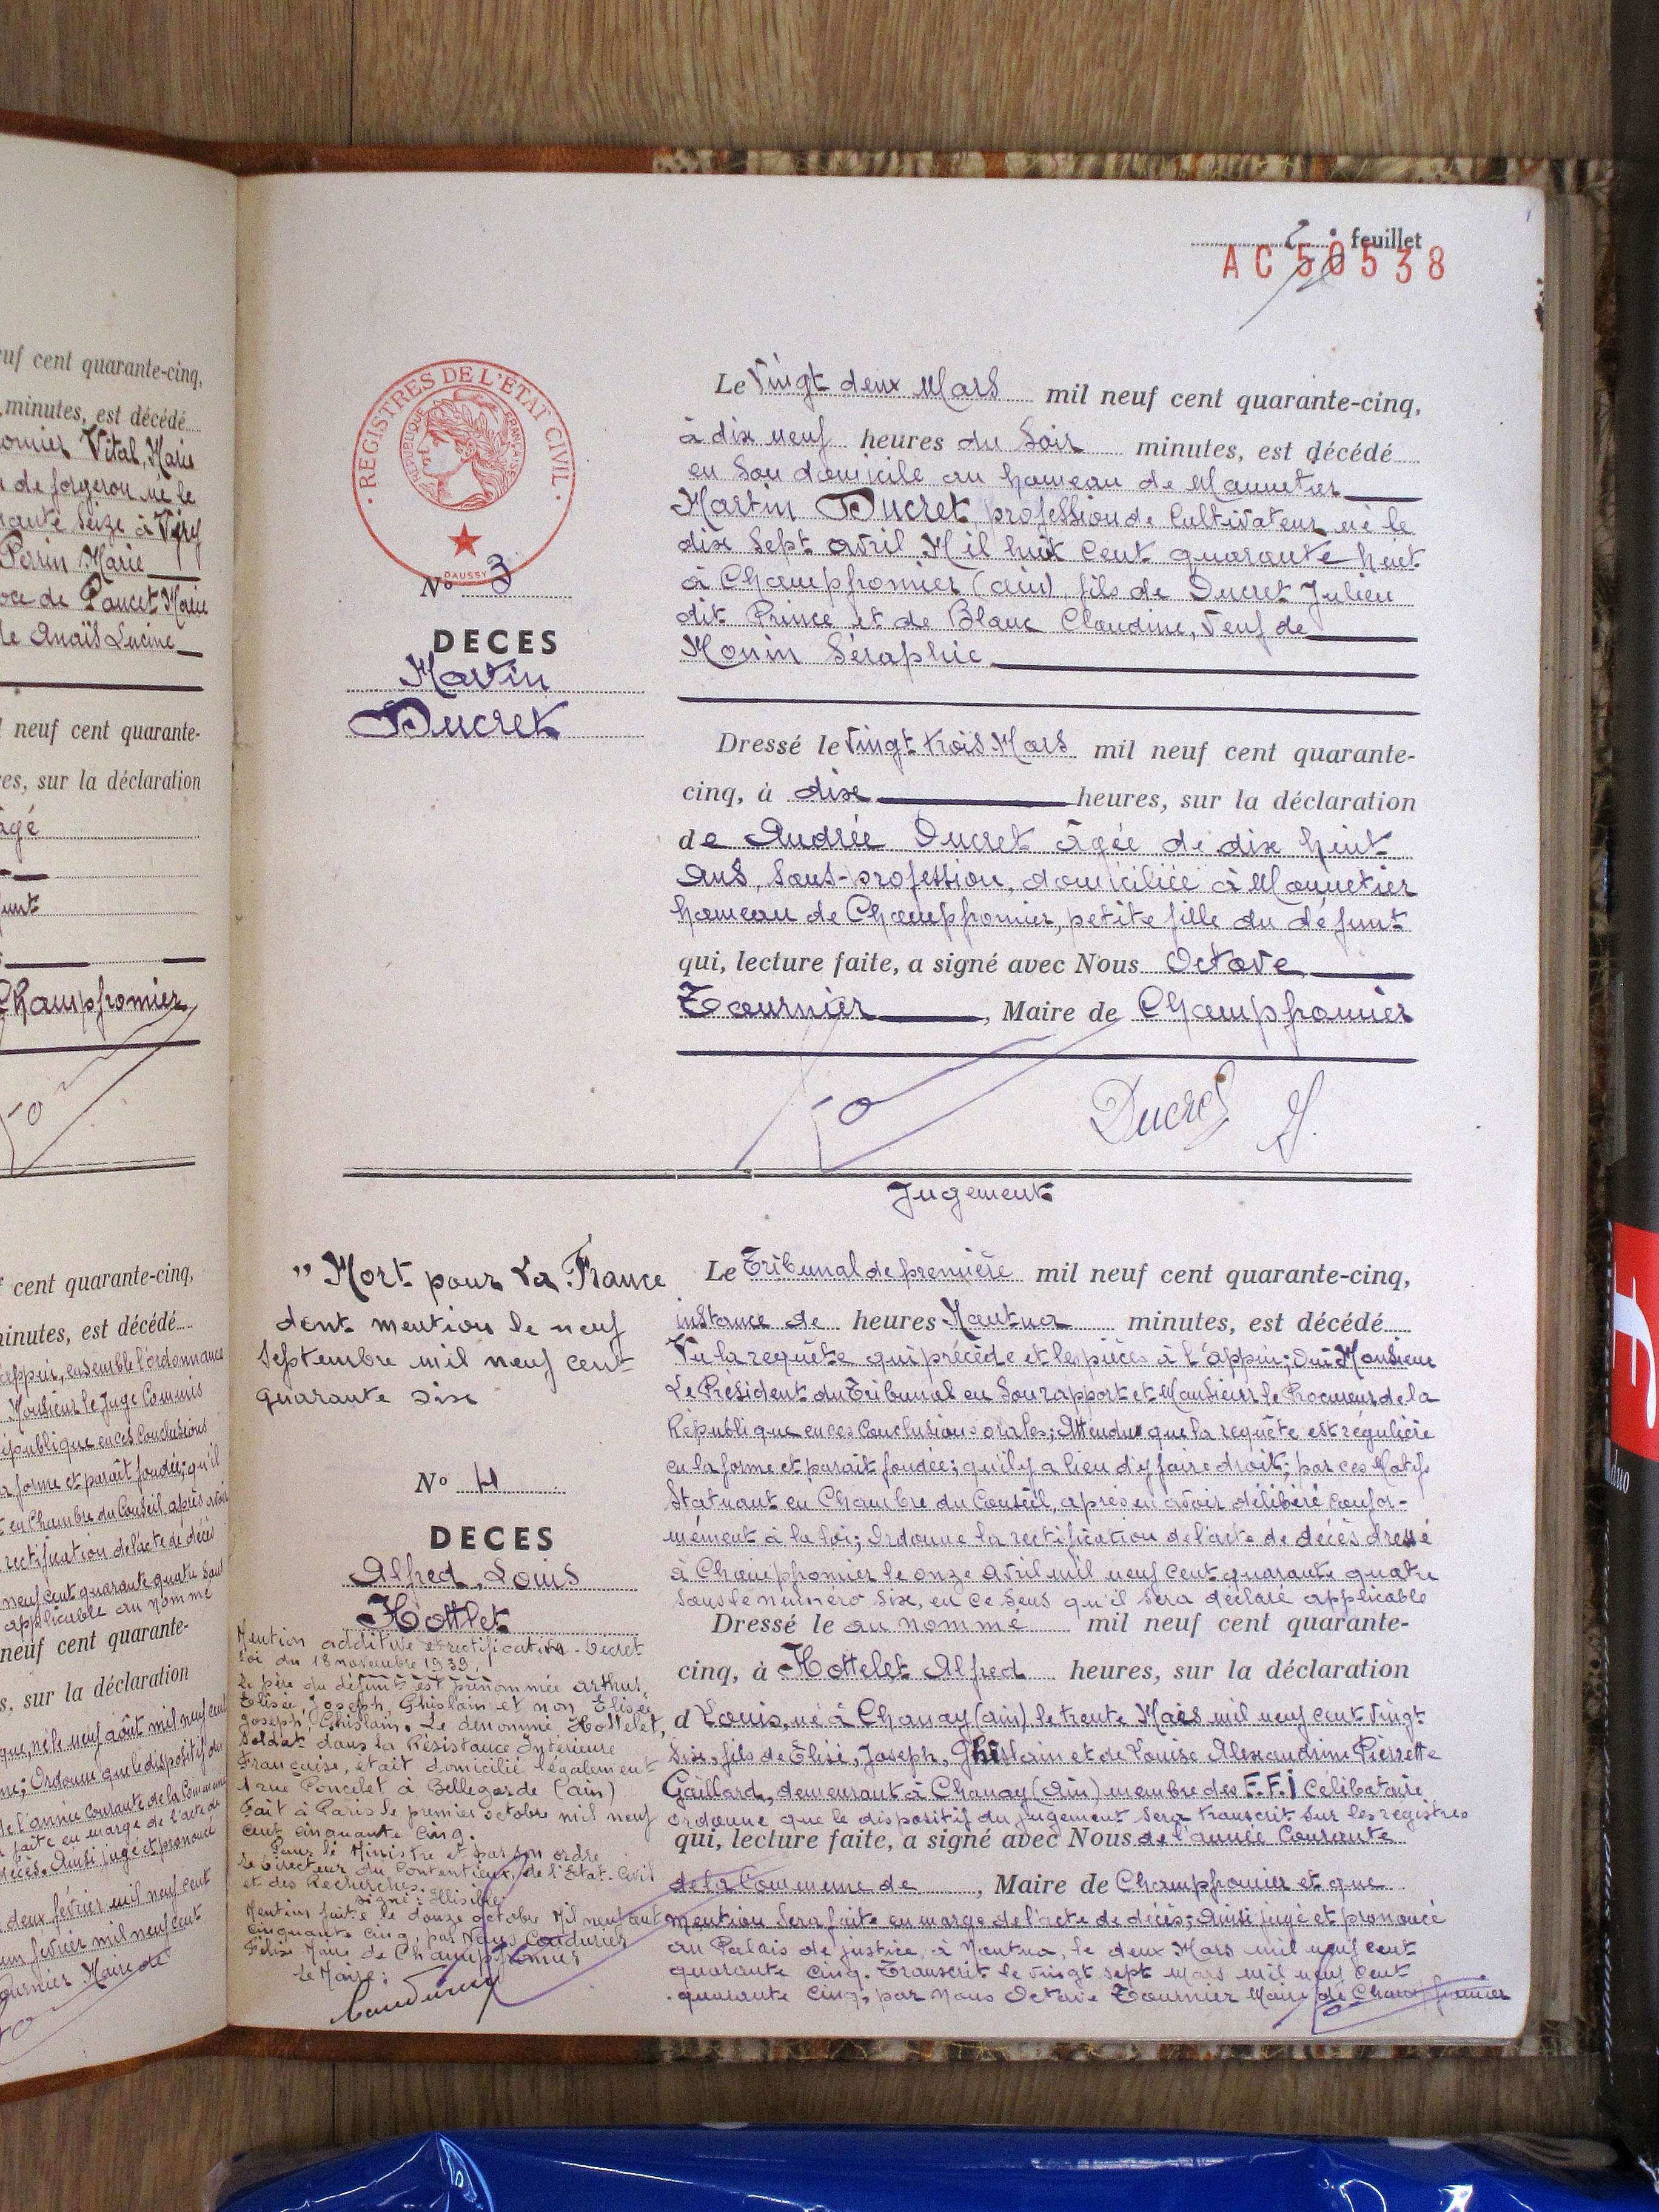 feuillet
AC 50538
REGISTRES DE L'ETAT CIVIL
REPUBLIQUE FRANCAISE
DAUSSY
N° 3
DECES
Martin
Ducret
Le Vingt deux Mars mil neuf cent quarante-cinq,
à dix neuf heures du Soir minutes, est décédé
en Son domicile au hameau de Monnetier
Martin Ducret, profession de Cultivateur né le
dix Sept avril Mil huit Cent quarante huit
à Champfromier (ain), fils de Ducret Julien
dit Prince et de Blanc Claudine, Veuf de
Monin Séraphie
Dressé le Vingt trois Mars mil neuf cent quarante-
cinq, à dix heures, sur la déclaration
de Andrée Ducret âgée de dix huit
ans, Sans-profession, domiciliée à Monnetier
hameau de Champfromier, petite fille du défunt
qui, lecture faite, a signé avec Nous Octave
Tournier, Maire de Champfromier
Ducret A.
Jugement
" Mort pour La France
dont mention le neuf
Septembre mil neuf cent
quarante six
N° 4
DECES
Alfred, Louis
Hottlet
Mention additive et rectificative - Décret
Loi du 18 novembre 1939
Le père du défunt est prénommé arthur,
Elisée, Joseph, Ghislain et non Elisée
Joseph, Ghislain. Le dénommé Hottelet,
Soldat dans la Résistance Intérieure
Française, était domicilié légalement
1 rue Poncelet à Bellegarde (ain)
Fait à Paris le premier octobre mil neuf
cent cinquante cinq.
Pour le Ministre et par son ordre
le Directeur du Contentieux, de l'Etat-Civil
et des Recherches.
signé : Illisible
Mention faite le douze octobre Mil neuf cent
cinquante cinq, par Nous Coudurier
Félix Maire de Champfromier
Le Maire :
Le Tribunal de première mil neuf cent quarante-cinq,
instance de heures Nantua minutes, est décédé
Vu la requête qui précède et les pièces à l'appui; Ouï Monsieur
Le Président du Tribunal en Son rapport et Monsieur le Procureur de la
République en ces Conclusions orales; Attendu que la requête est régulière
en la forme et parait fondée; qu'il y a lieu d'y faire droit; par ces Motifs
Statuant en Chambre du Conseil, après en avoir délibéré confor-
mément à la loi; Ordonne la rectification de l'acte de décès dressé
à Champfromier le onze avril mil neuf cent quarante quatre
sous le numéro six, en ce sens qu'il sera déclaré applicable
Dressé le au nommé mil neuf cent quarante-
cinq, à Hottelet Alfred heures, sur la déclaration
d Louis, né à Chanay (ain) le trente Mars mil neuf cent vingt
six, fils de Elisé, Joseph, Ghislain et de Louise Alexandrine Pierrette
Gaillard, demeurant à Chanay (Ain) membre des F.F.I Célibataire
ordonne que le dispositif du jugement sera transcrit sur les registres
qui, lecture faite, a signé avec Nous de l'année Courante
de la Commune de, Maire de Champfromier et que
mention Sera faite en marge de l'acte de décès; Ainsi jugé et prononcé
au Palais de justice, à Nantua, le deux Mars mil neuf cent
quarante cinq. Transcrit le vingt sept Mars mil neuf cent
quarante cinq, par Nous Octave Tournier Maire de Champfromier